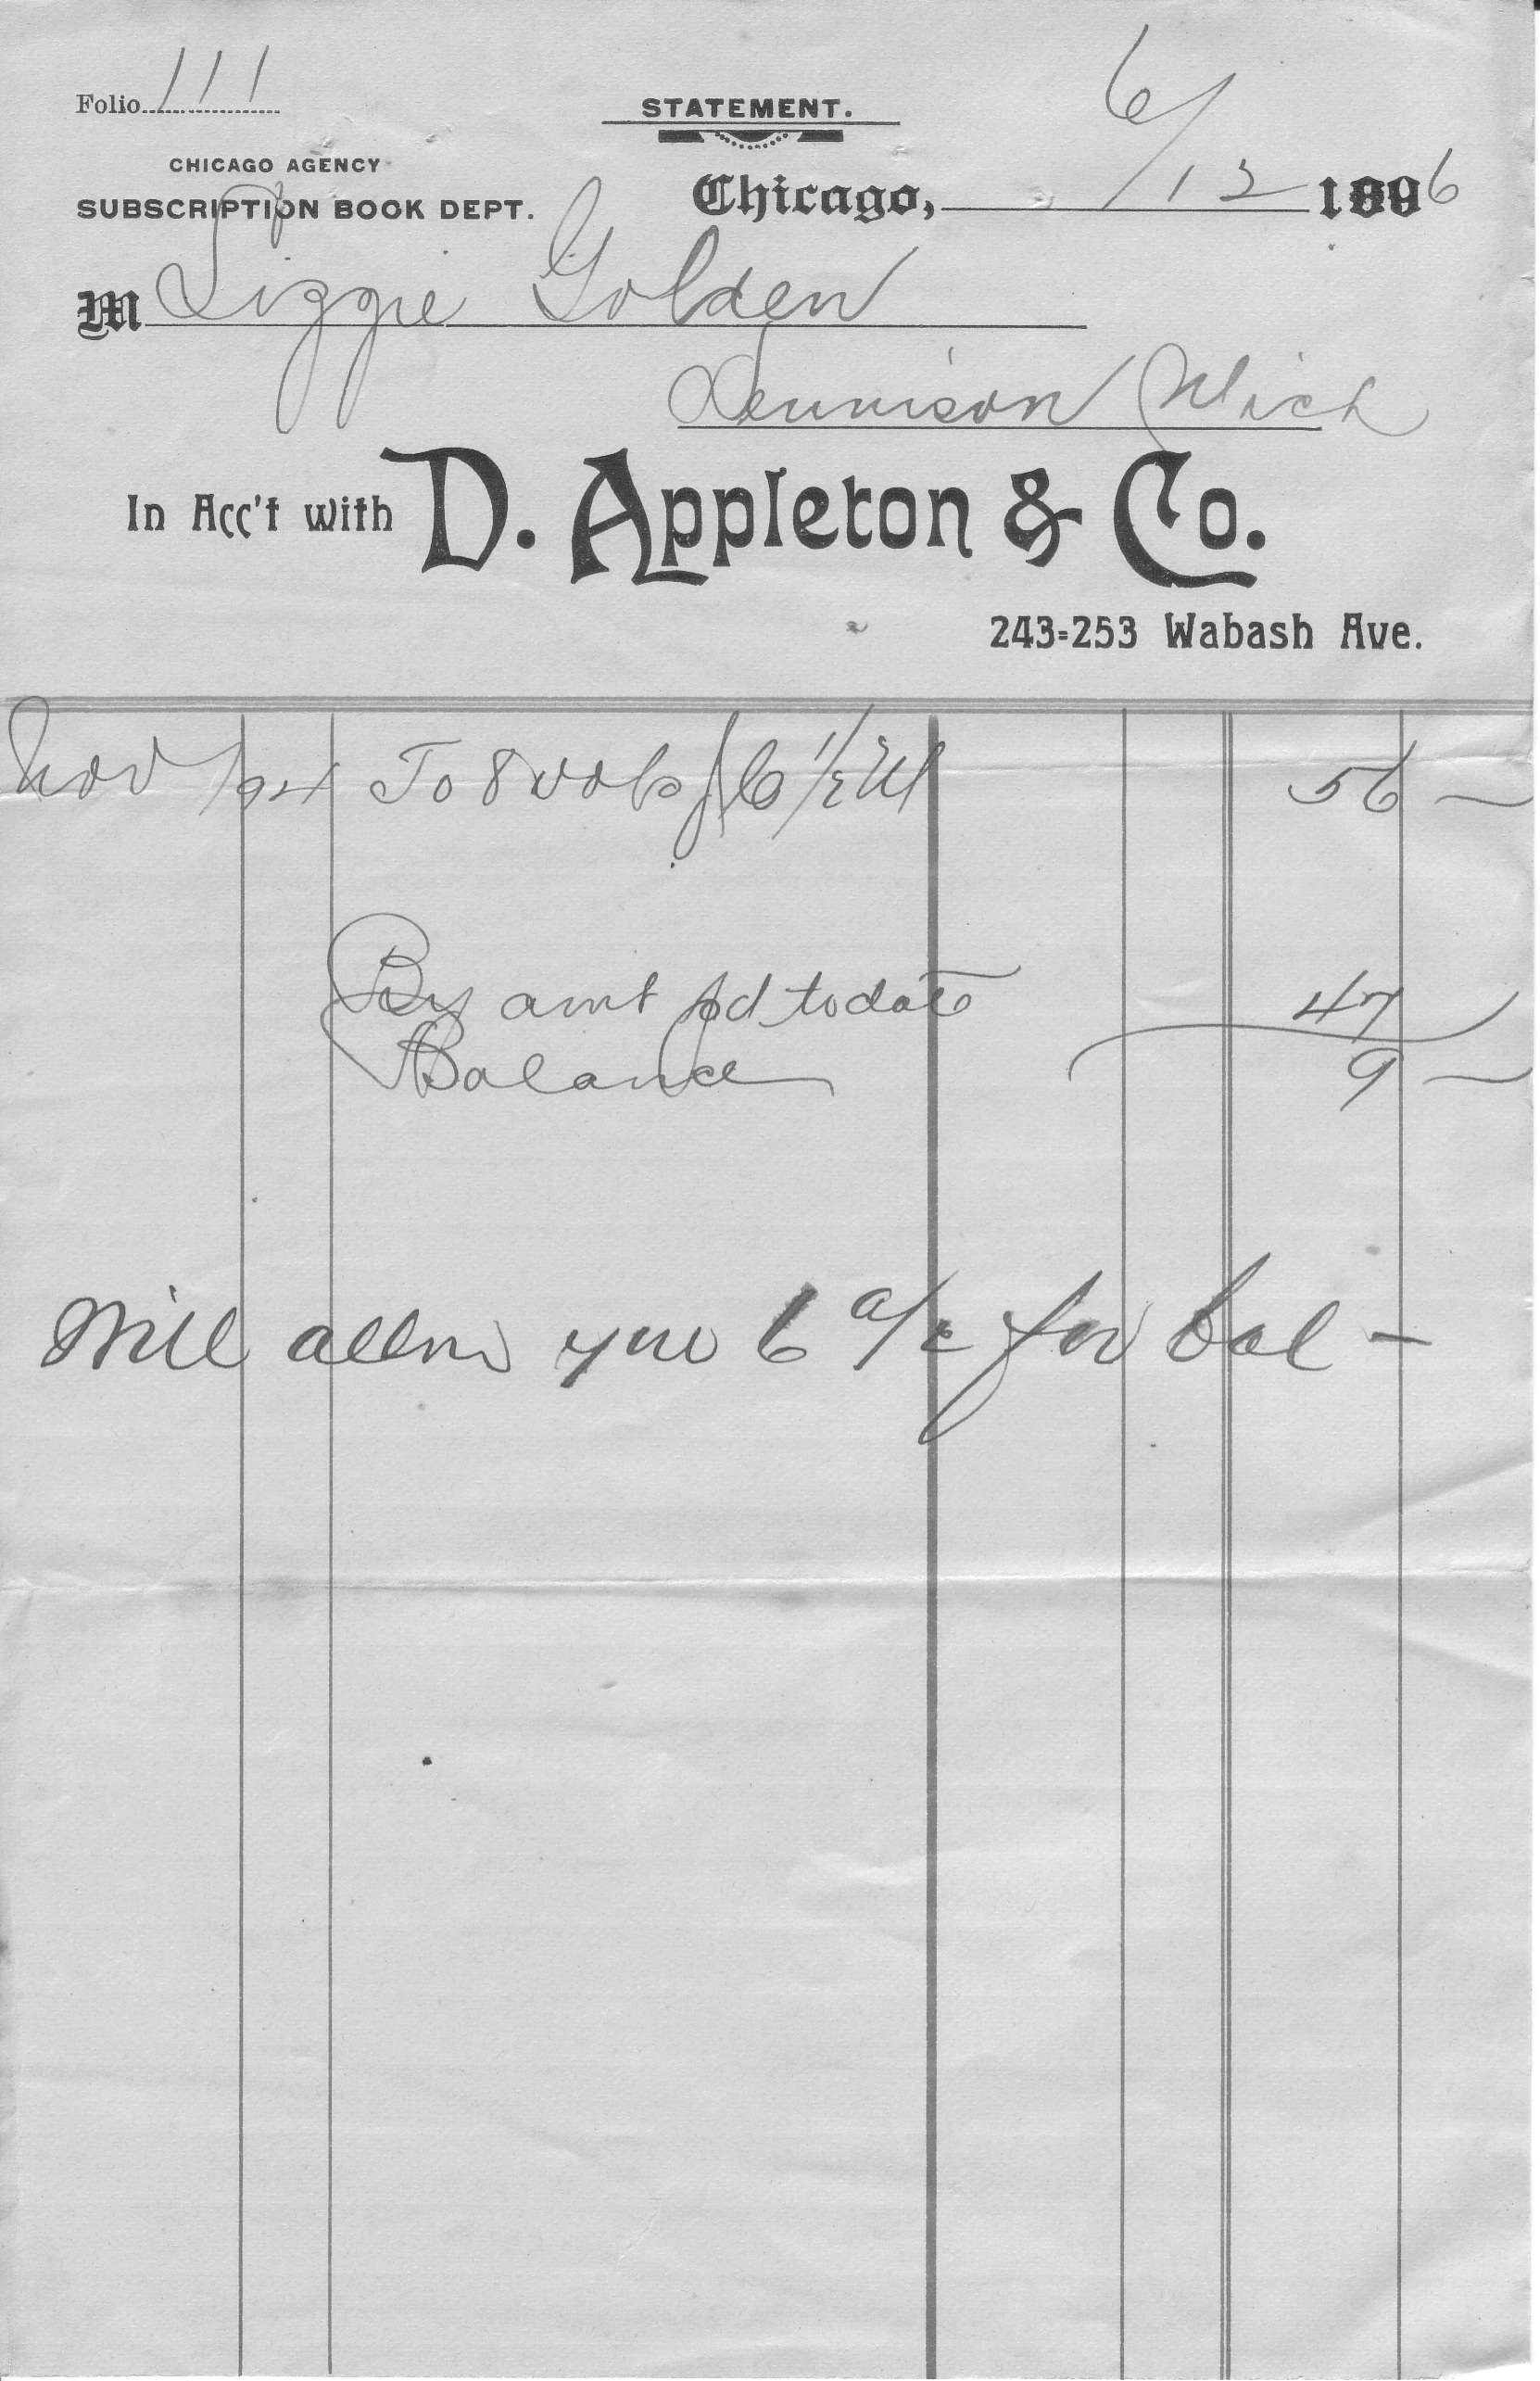 Folio 111
STATEMENT.
6/12
CHICAGO AGENCY
SUBSCRIPTION BOOK DEPT.
Chicago, 1896
M Lizzie Golden
Dennison Mich
In Acc't with D. Appleton & Co.
243-253 Wabash Ave.
Nov /94 To 8 vols 1/2 56 —
By amt pd to date 47
Balance 9 —
Will allow you 6 for bal —